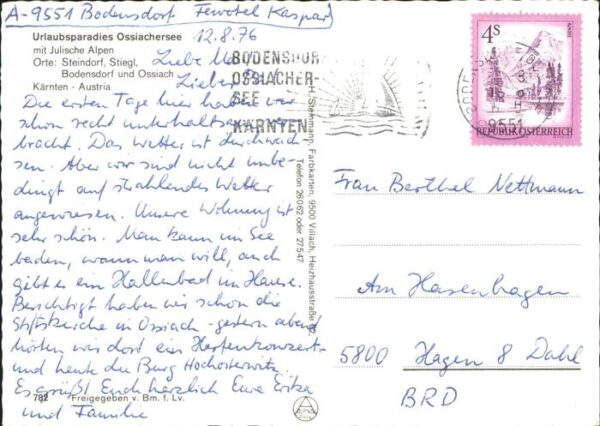 A-9551 Bodensdorf Ferotel Kaspar
Urlaubsparadies Ossiachersee
12.8.76
mit Julische Alpen
Orte: Steindorf, Stiegl,
Bodensdorf und Ossiach
Kärnten - Austria
Liebe
Liebe
Die ersten Tage hier haben wir
schon recht unterhaltsam
bracht. Das Wetter ist durchwach-
sen. Aber wir sind nicht unbe-
dingt auf strahlendes Wetter
angewiesen. Unsere Wohnung ist
sehr schön. Man kann im See
baden, wann man will, auch
gibt es ein Hallenbad im Hause.
Besichtigt haben wir schon die
Stiftskirche in Ossiach - gestern abend
hörten wir dort ein Harfenkonzert -
und heute die Burg Hochosterwitz.
Es grüßt Euch herzlich Eure
und Familie
782 Freigegeben v. Bm. f. Lv.
BODENSDORF
OSSIACHER-
SEE
KÄRNTEN
9551
4S
REPUBLIK ÖSTERREICH
Farbkarten, 9500 Villach, Heizhausstraße
Telefon 26062 oder 27547
Frau Berthel Nettmann
Am Hasenhagen
5800 Hagen 8 Dahl
BRD